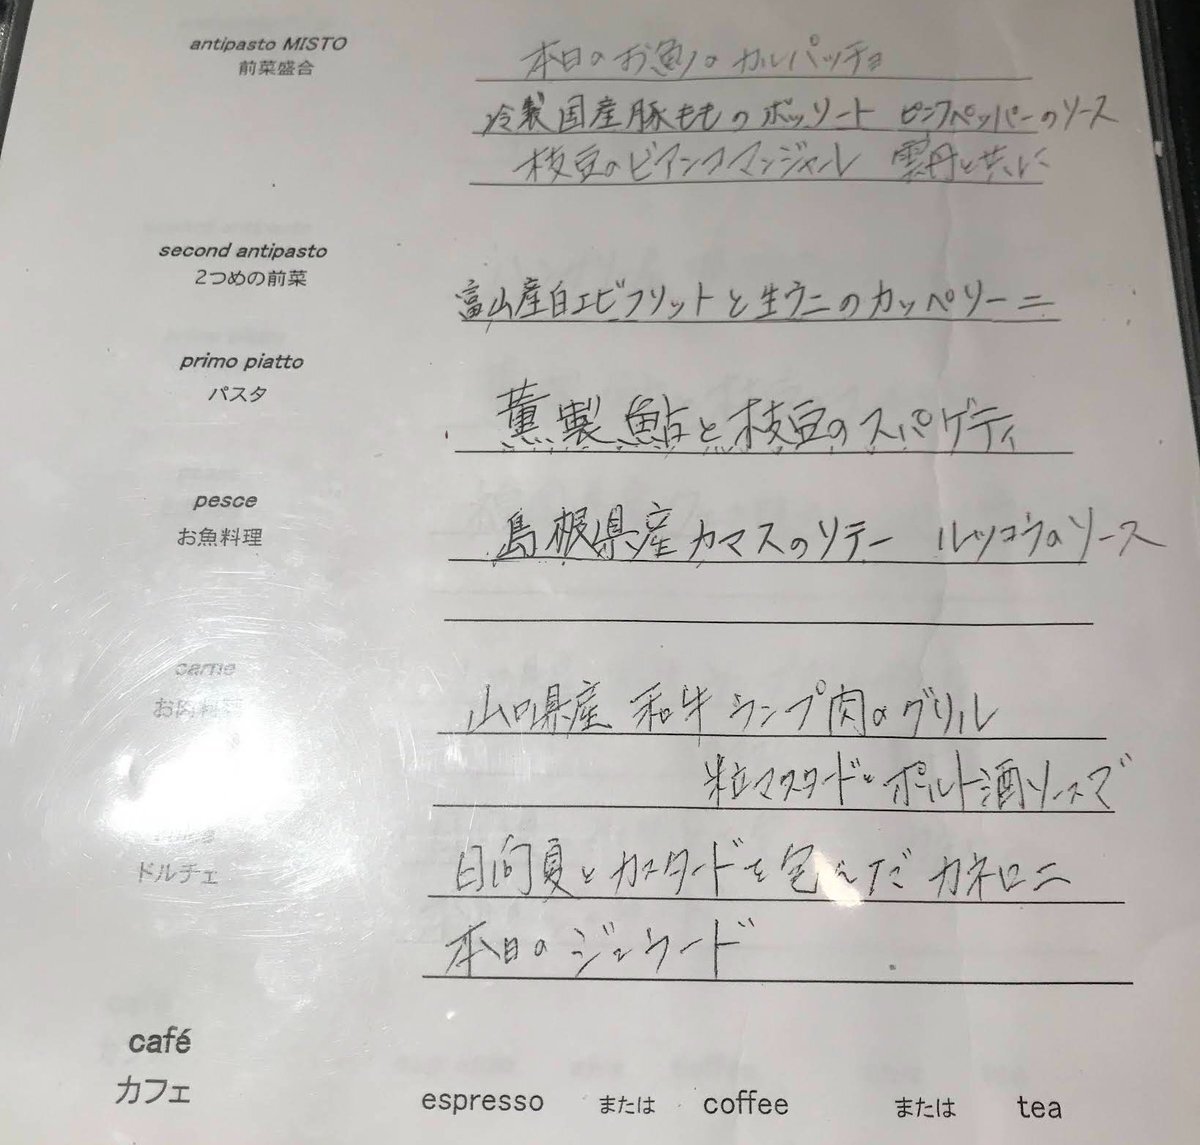 antipasto MISTO
前菜盛合
本日のお魚のカルパッチョ
冷製国産豚もものボッリート ピンクペッパーのソース
枝豆のビアンコマンジャーレ 雲丹と共に
second antipasto
2つめの前菜
富山産白エビフリットと生ウニのカッペリーニ
primo piatto
パスタ
薫製鮎と枝豆のスパゲティ
pesce
お魚料理
島根県産カマスのソテー ルッコラのソース
carne
お肉料理
山口県産 和牛ランプ肉のグリル
粒マスタードとポルト酒ソースで
ドルチェ
日向夏とカスタードを包んだカネロニ
本日のジェラード
café
カフェ
espresso または coffee または tea